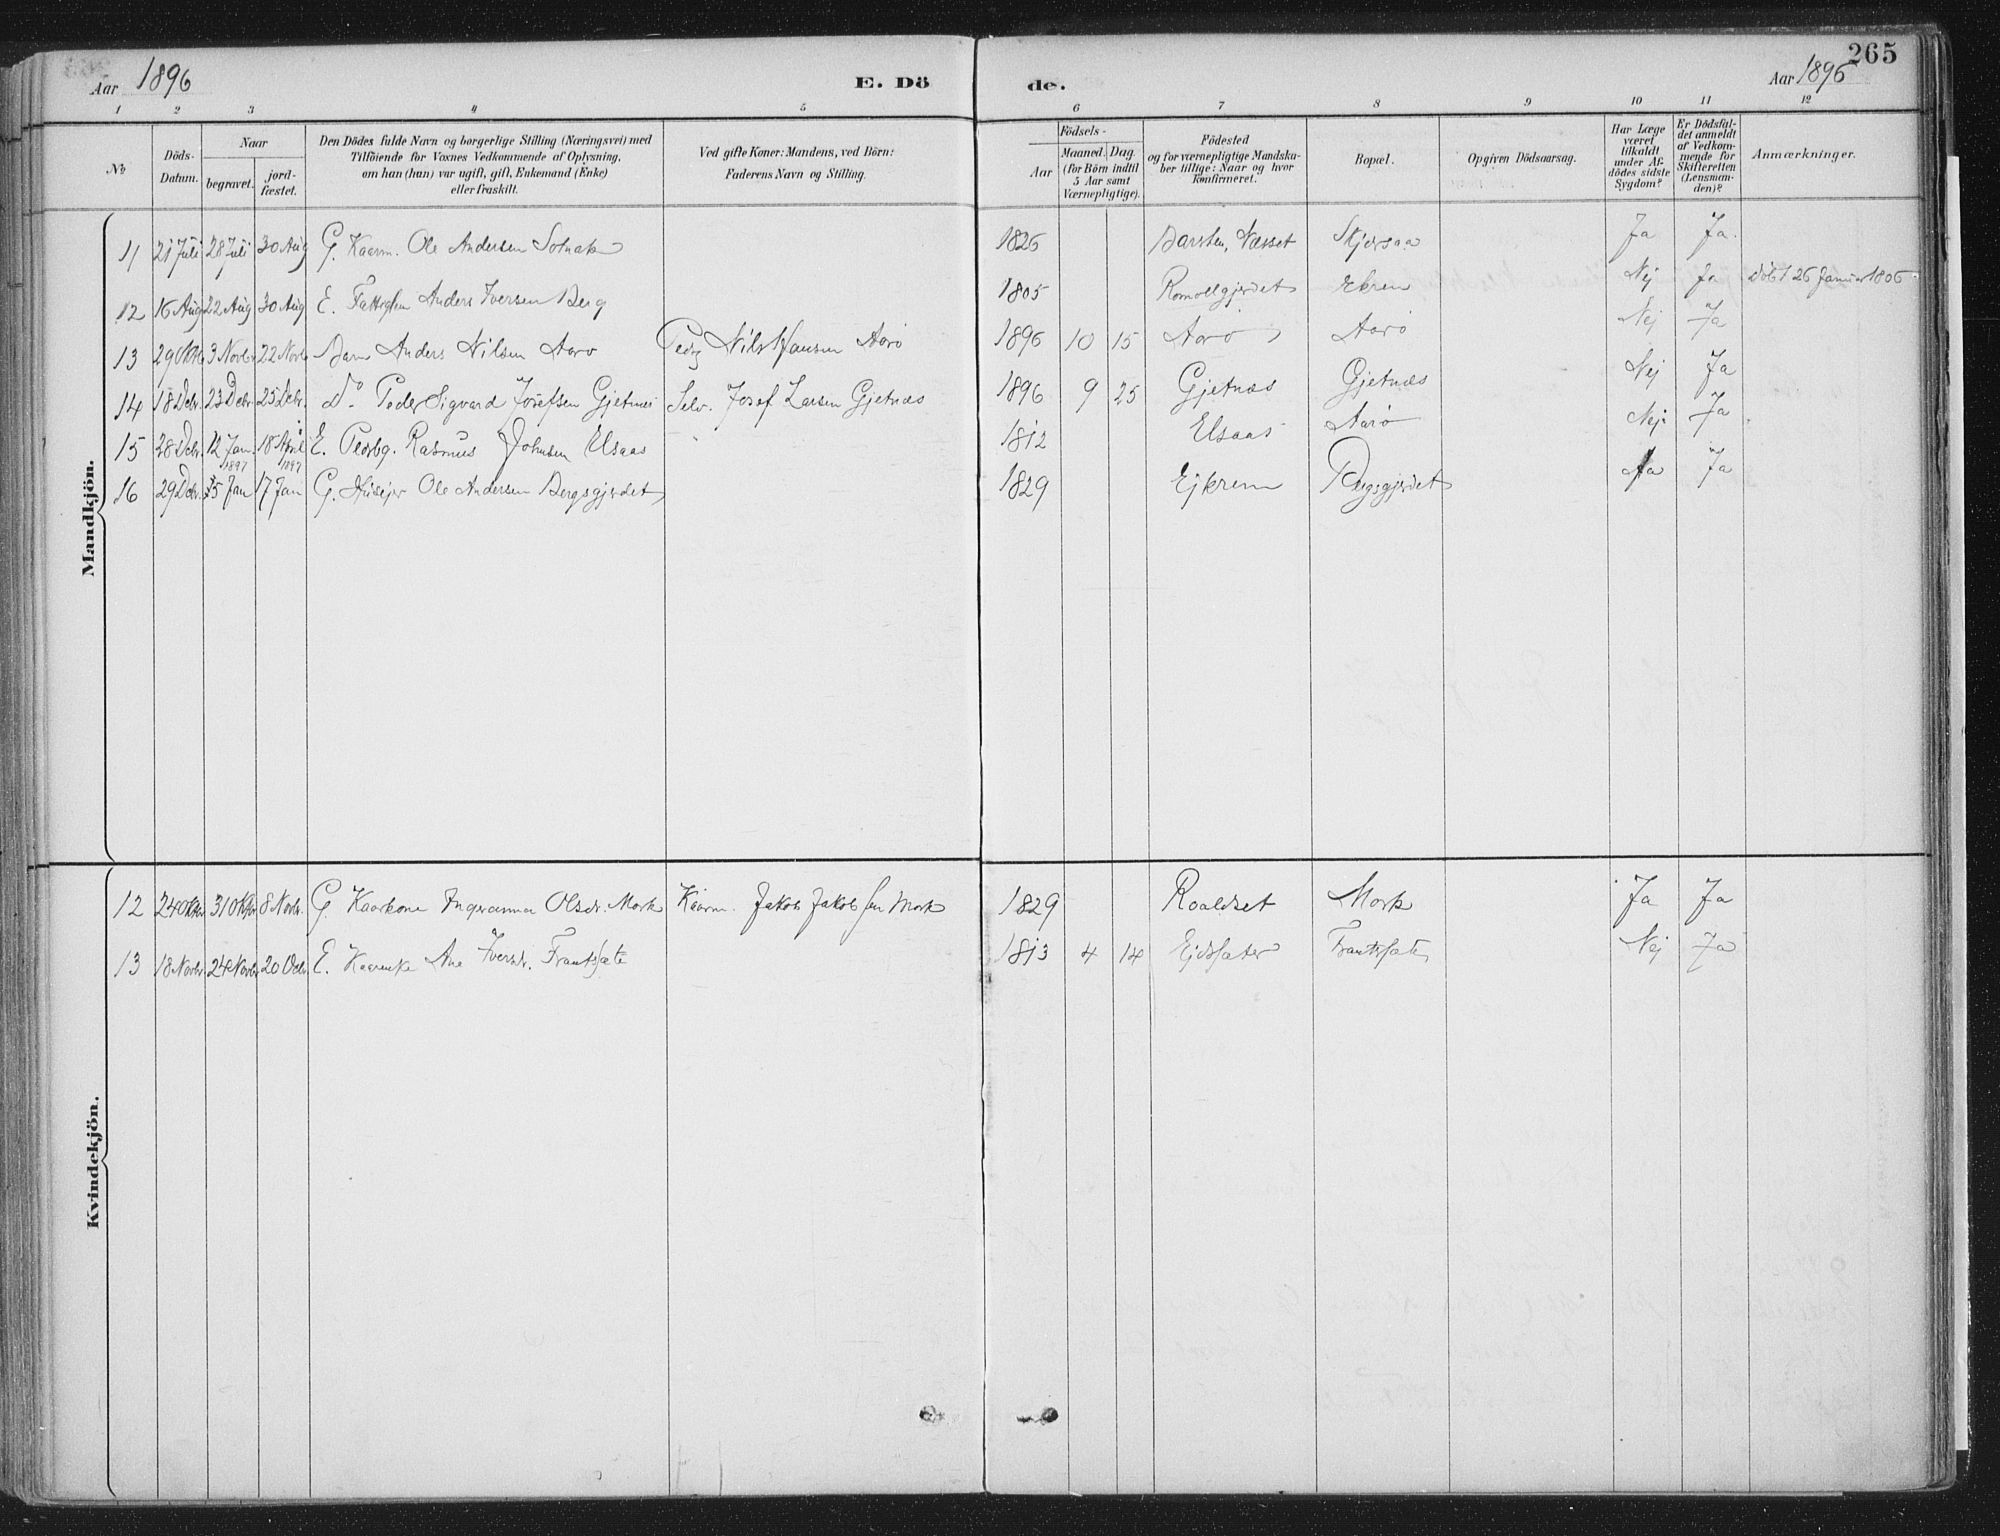 265
Aar 1896 E. Dö de. Aar 1896
1 2 3 4 5 6 7 8 9 10 11 12
No
Döds-Datum.
Naar
begravet.
jord-fæstet.
Den Dödes fulde Navn og borgerlige Stilling (Næringsvei) med
Tilföiende for Voxnes Vedkommende af Oplysning,
om han (hun) var ugift, gift, Enkemand (Enke)
eller fraskilt.
Ved gifte Koner: Mandens, ved Börn:
Faderens Navn og Stilling.
Födsels-
Aar
Maaned. Dag
(for Börn indtil
5 Aar samt
Værnepligtige).
Födested
og for værnepligtige Mandska-
ber tillige: Naar og hvor
konfirmeret.
Bopæl.
Opgiven Dödsaarsag.
Har Læge
været
tilkaldt
under Af-
dödes sidste
Sygdom?
Er Dödsfal-
det anmeldt
af Vedkom-
mende for
Skifteretten
(Lensman-
den)?
Anmærkninger.
Mandkjön.
11 21 Juli 28 Juli 30 Aug G. Kaarm. Ole Andersen Solnak 1826 Barsten, Næsset Skjorsaa Ja Ja.
12 16 Aug 22 Aug 30 Aug E. Anders Iversen Berg 1805 Romollgjerdet Ekrem Nej Ja Döbt 26 Januar 1806
13 29 Okt 3 Novbr 22 Novbr Barn Anders Nilsen Aarö Pedbg Nils Hansen Aarö 1896 10 15 Aarö Aarö Nej Ja
14 18 Debr. 23 Debr. 25 Debr. Do Peder Sigvard Josefsen Gjetnes Selv. Josef Larsen Gjetnæs 1896 9 25 Gjetnæs Gjetnæs Nej Ja
15 28 Debr. 12 Jan. 1897 18 April 1897 E. Pedbg. Rasmus Johnsen Elsaas 1812 Elsaas Aarö Nej Ja
16 29 Debr. 5 Jan 17 Jan G. Husejer Ole Andersen Bergsgjerdet 1829 Ejkrem Bergsgjerdet Ja Ja
Kvindekjön.
12 24 Oktbr 31 Oktbr 8 Novbr. G. Kaarkone Ingeranna Olsdr. Mork Kaarm. Jakob Jakobsen Mork 1829 Roaldset Mork Ja Ja
13 18 Novbr 24 Novbr 20 Debr E. Kaarenke Ane Iversdr. Frantssæte 1813 4 14 Ejdssæter Frantssæte Nej Ja